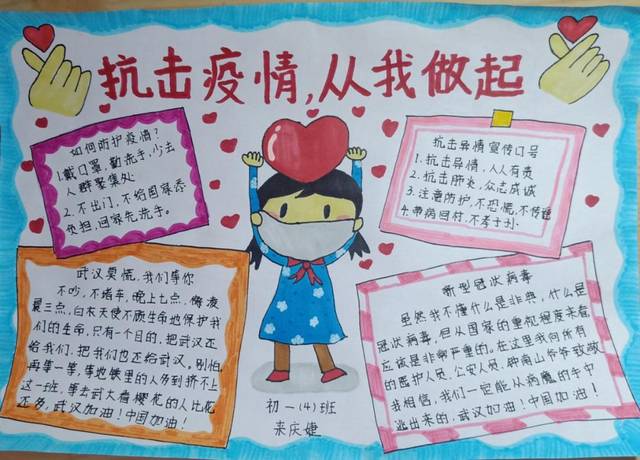 抗击疫情,从我做起
如何防护疫情?
1.戴口罩,勤洗手,少去
人群聚集处
2.不出门,不给国家添
负担,回家先洗手。
抗击异情宣传口号
1.抗击异情,人人有责
2.抗击肺炎,众志成诚
3.注意防护,不恐慌,不传谣
4.带病回村,不孝子孙.
武汉莫慌,我们等你
不吵,不堵车,晚上七点,
三点,白衣天使不顾生命地保护我
们的生命,只有一个目的,把武汉还
给我们,把我们也还给武汉。别怕
再等一等,等地铁里的人多到挤不上
这一班,等去武大看樱花的人比花
还多,武汉加油!中国加油!
新型冠状病毒
虽然我不懂什么是非典,什么是
冠状病毒,但从国家的重视程度来看
应该是非常严重的。在这里我向所有
的医护人员,公安人员,钟南山爷爷致敬
我相信,我们一定能从病魔的手中
逃出来的,武汉加油!中国加油!
初一(4)班
来庆婕